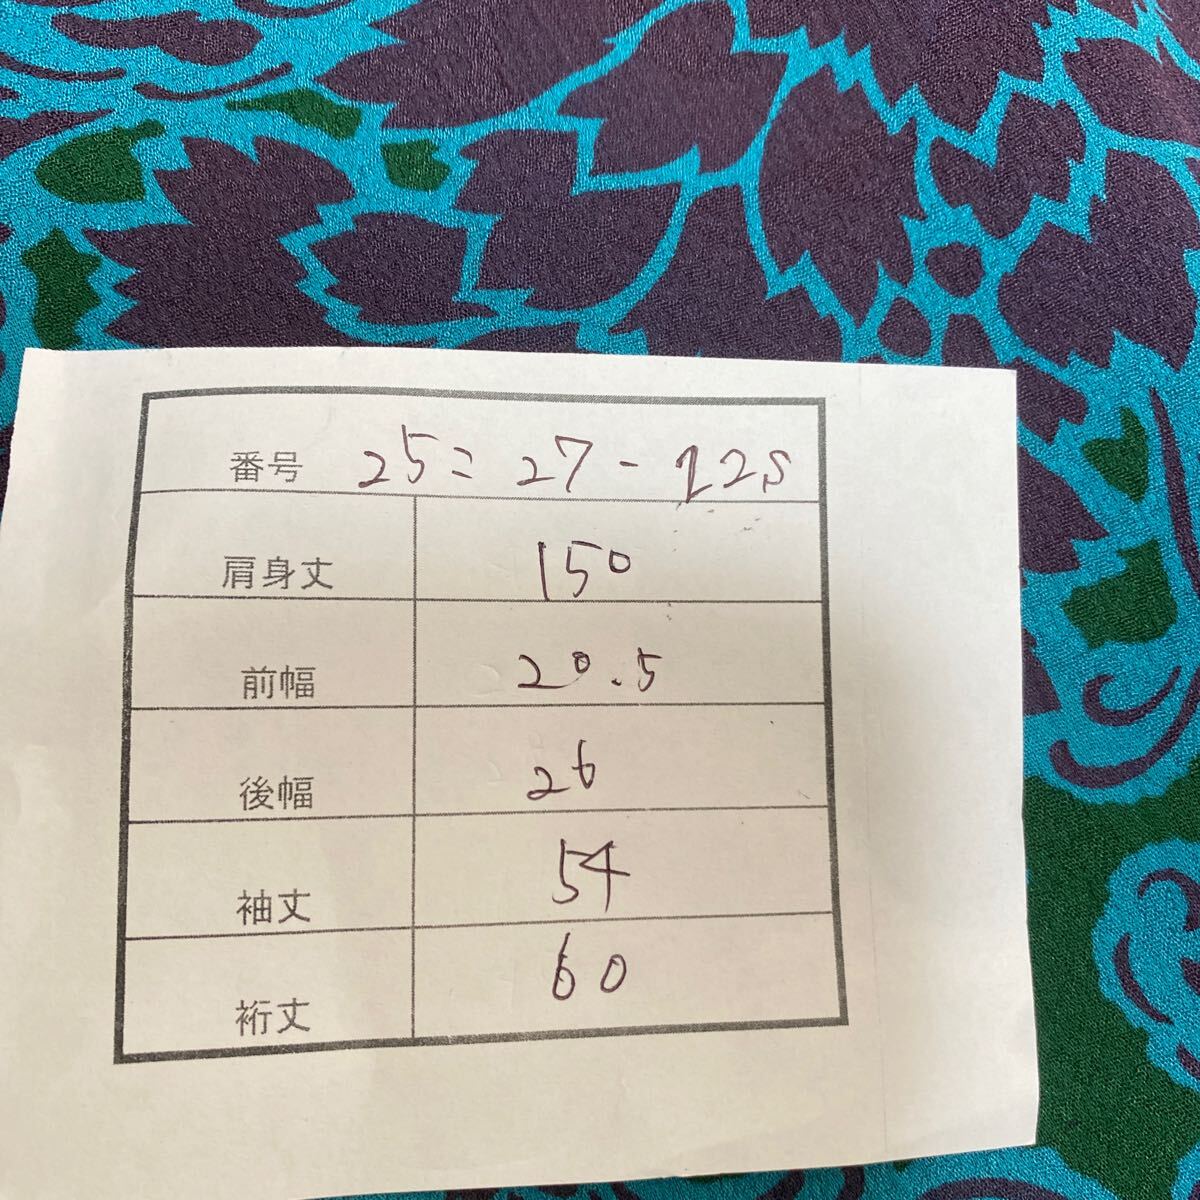 番号 25ニ 27-22s
肩身丈 150
前幅 20.5
後幅 26
袖丈 54
裄丈 60